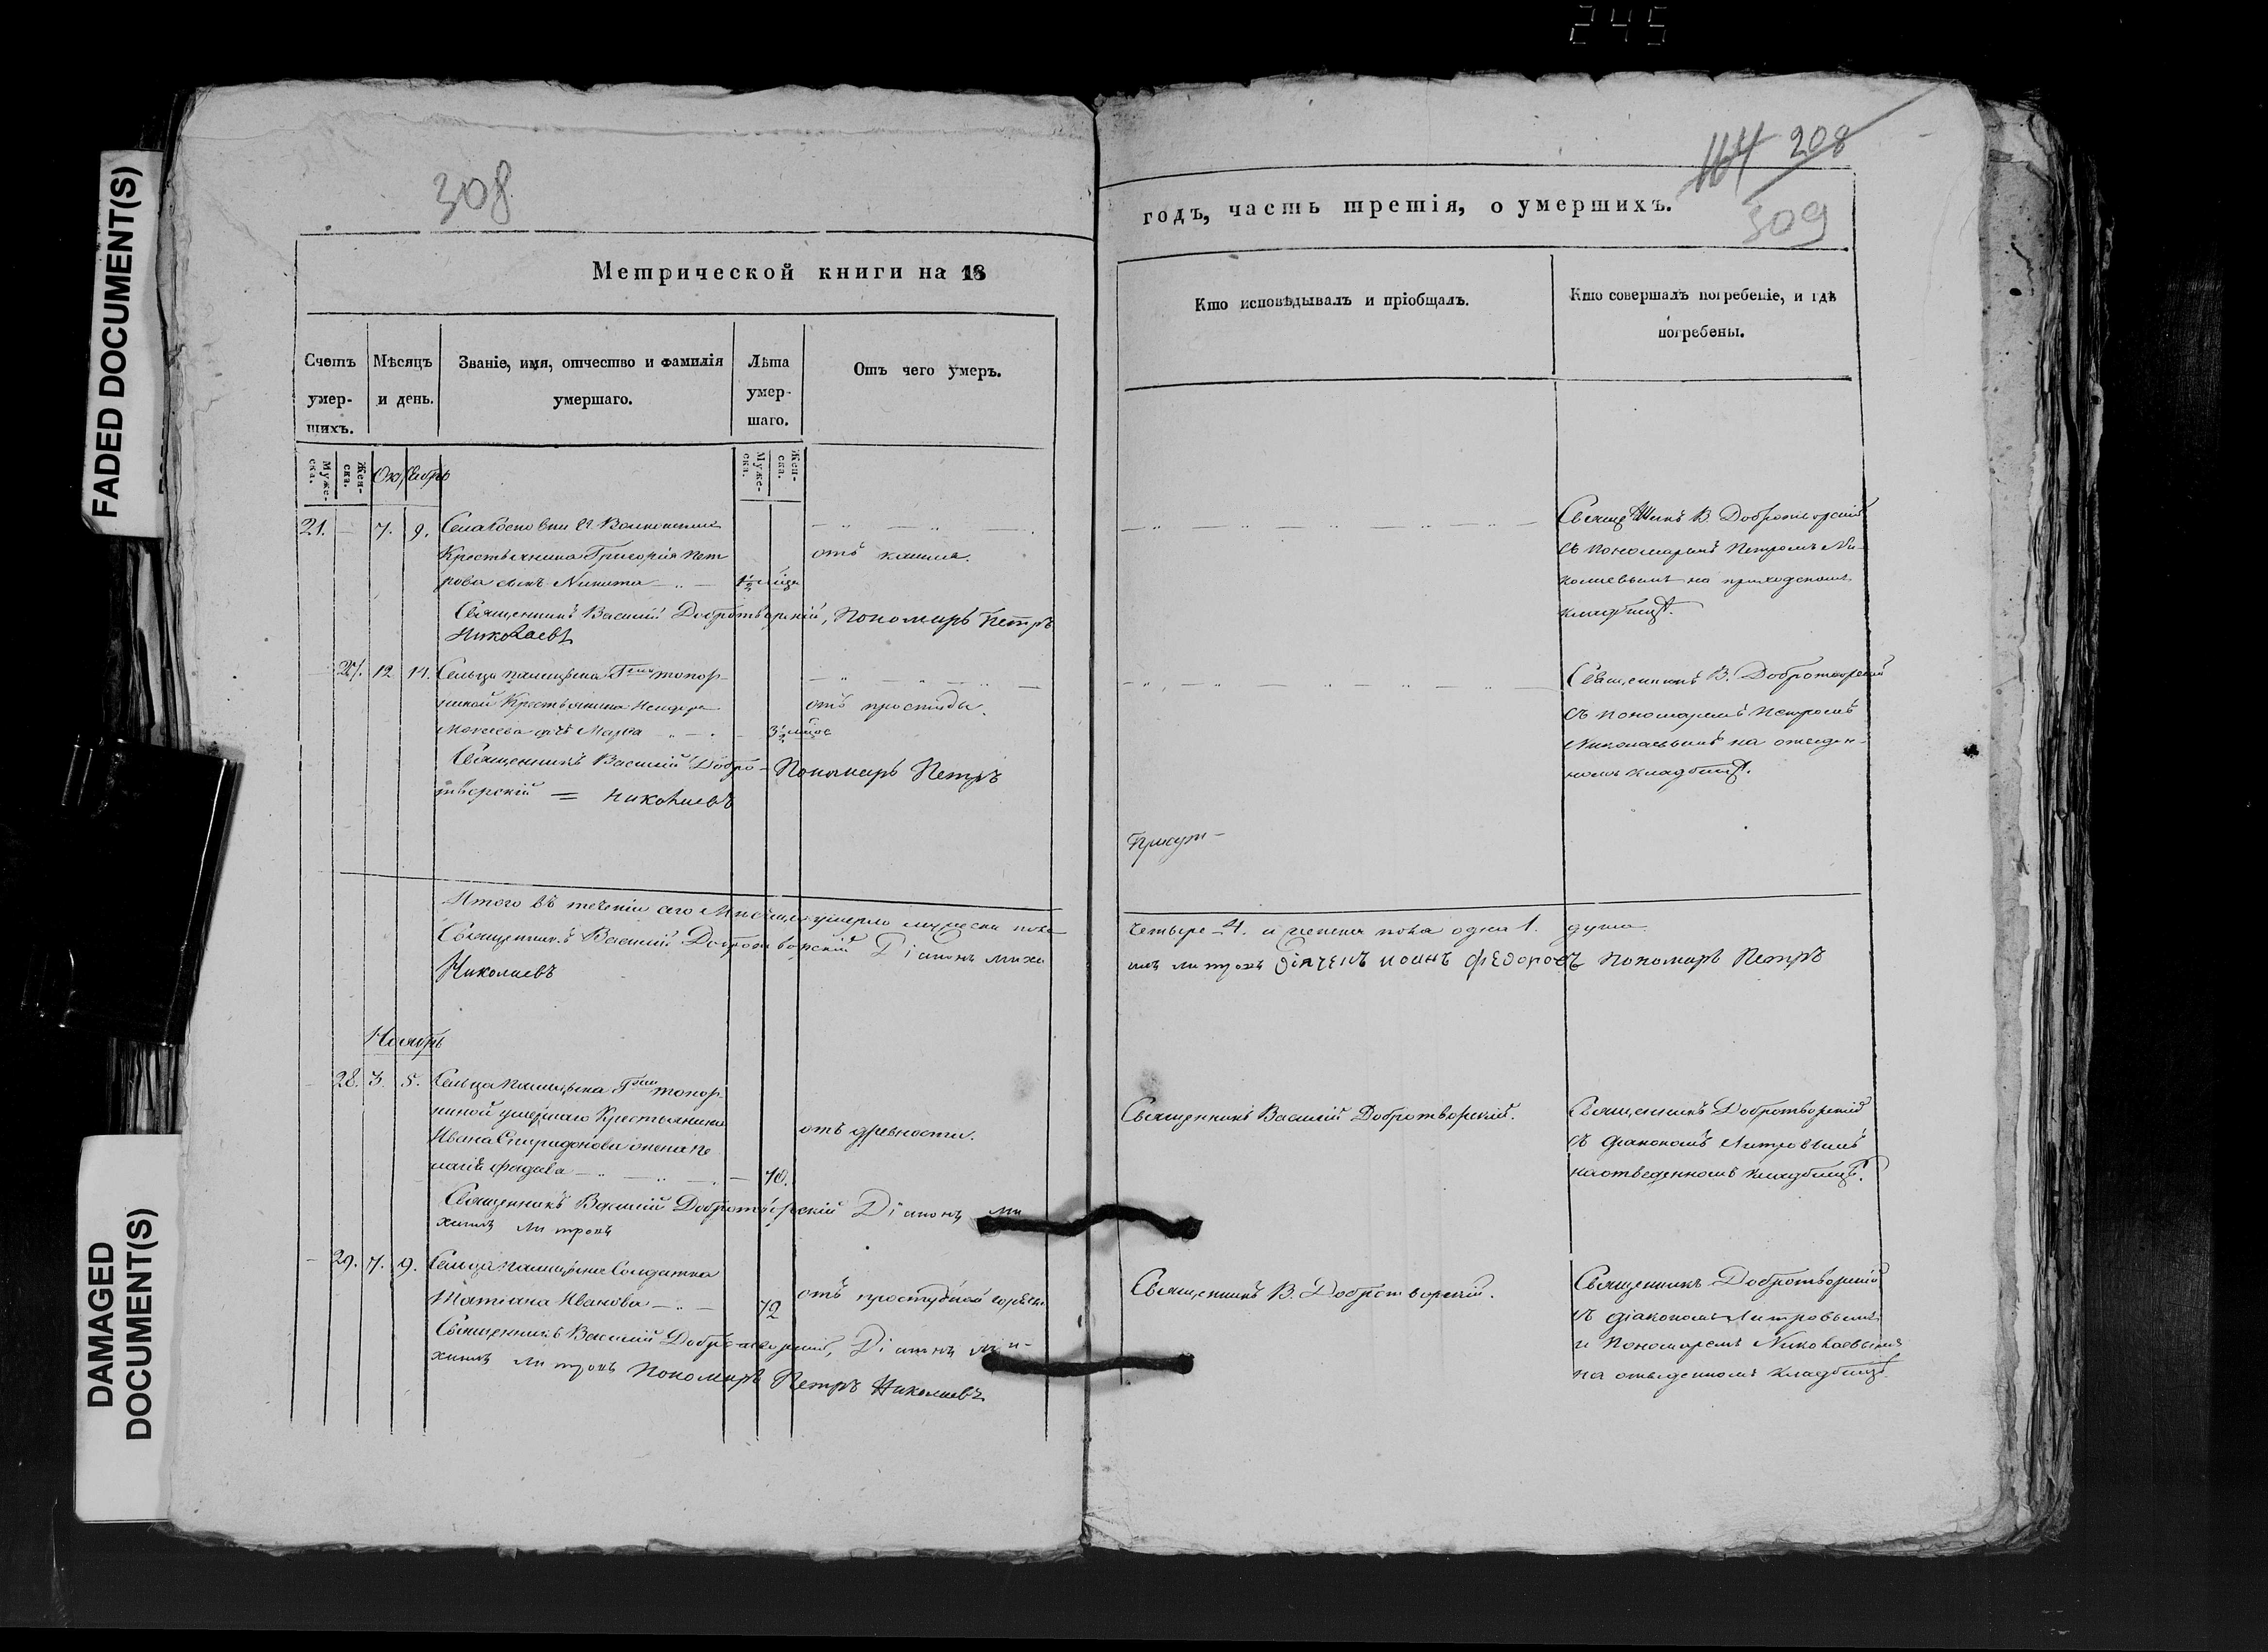 245
FADED DOCUMENT(S)
DAMAGED
DOCUMENT(S)
308
Метрической книги на 18
Счетъ умер-шихъ.
Мѣсяцъ и день.
Званіе, имя, отчество и фамилія умершаго.
Лѣта умер-шаго.
Отъ чего умеръ.
Муже-ска.
Жен-ска.
Октябрь
Муже-ска.
Жен-ска.
21. — 7. 9. Села
Крестьянина Григорія Пет
отъ кашля.
рова сынъ Никита
Священникъ Василій Добротворскій, Пономарь Петръ
Николаевъ
27. 12 14. Сельца
Крестьянина
отъ простуды.
дочь Марѳа
Священникъ Василій Добро- Пономарь Петръ
творскій = Николаевъ
Итого въ теченіи сего Мѣсяца умерло мужеска пола
Священникъ Василій Добротворскій Діаконъ Миха
Николаевъ
Ноябрь
28. 3. 5. Сельца
умершаго Крестьянина
Ивана Спиридонова жена Пе
отъ древности.
70.
Священникъ Василій Добротворскій Діаконъ Ми
хаилъ Митровъ
29. 7. 9. Сельца Солдатка
Татіана Иванова 72
отъ простудной
Священникъ Василій Добротворскій, Діаконъ Ми-
хаилъ Митровъ Пономарь Петръ Николаевъ
164 208
309
годъ, часть третія, о умершихъ.
Кто исповѣдывалъ и пріобщалъ.
Кто совершалъ погребеніе, и гдѣ
погребены.
Священникъ В. Добротворскій
съ пономаремъ Петромъ Ни-
колаевымъ на приходскомъ
кладбищѣ.
Священникъ В. Добротворскій
съ пономаремъ Петромъ
Николаевымъ на отведен-
номъ кладбищѣ.
четыре 4. и женска пола одна 1. душа
илъ Митровъ Діячекъ Иоанъ Федоровъ Пономарь Петръ
Священникъ Василій Добротворскій.
Священникъ Добротворскій
съ діакономъ Митровымъ
на отведенномъ кладбищѣ.
Священникъ В. Добротворскій.
Священникъ Добротворскій
съ діакономъ Митровымъ
и Пономаремъ Николаевымъ
на отведенномъ кладбищѣ.